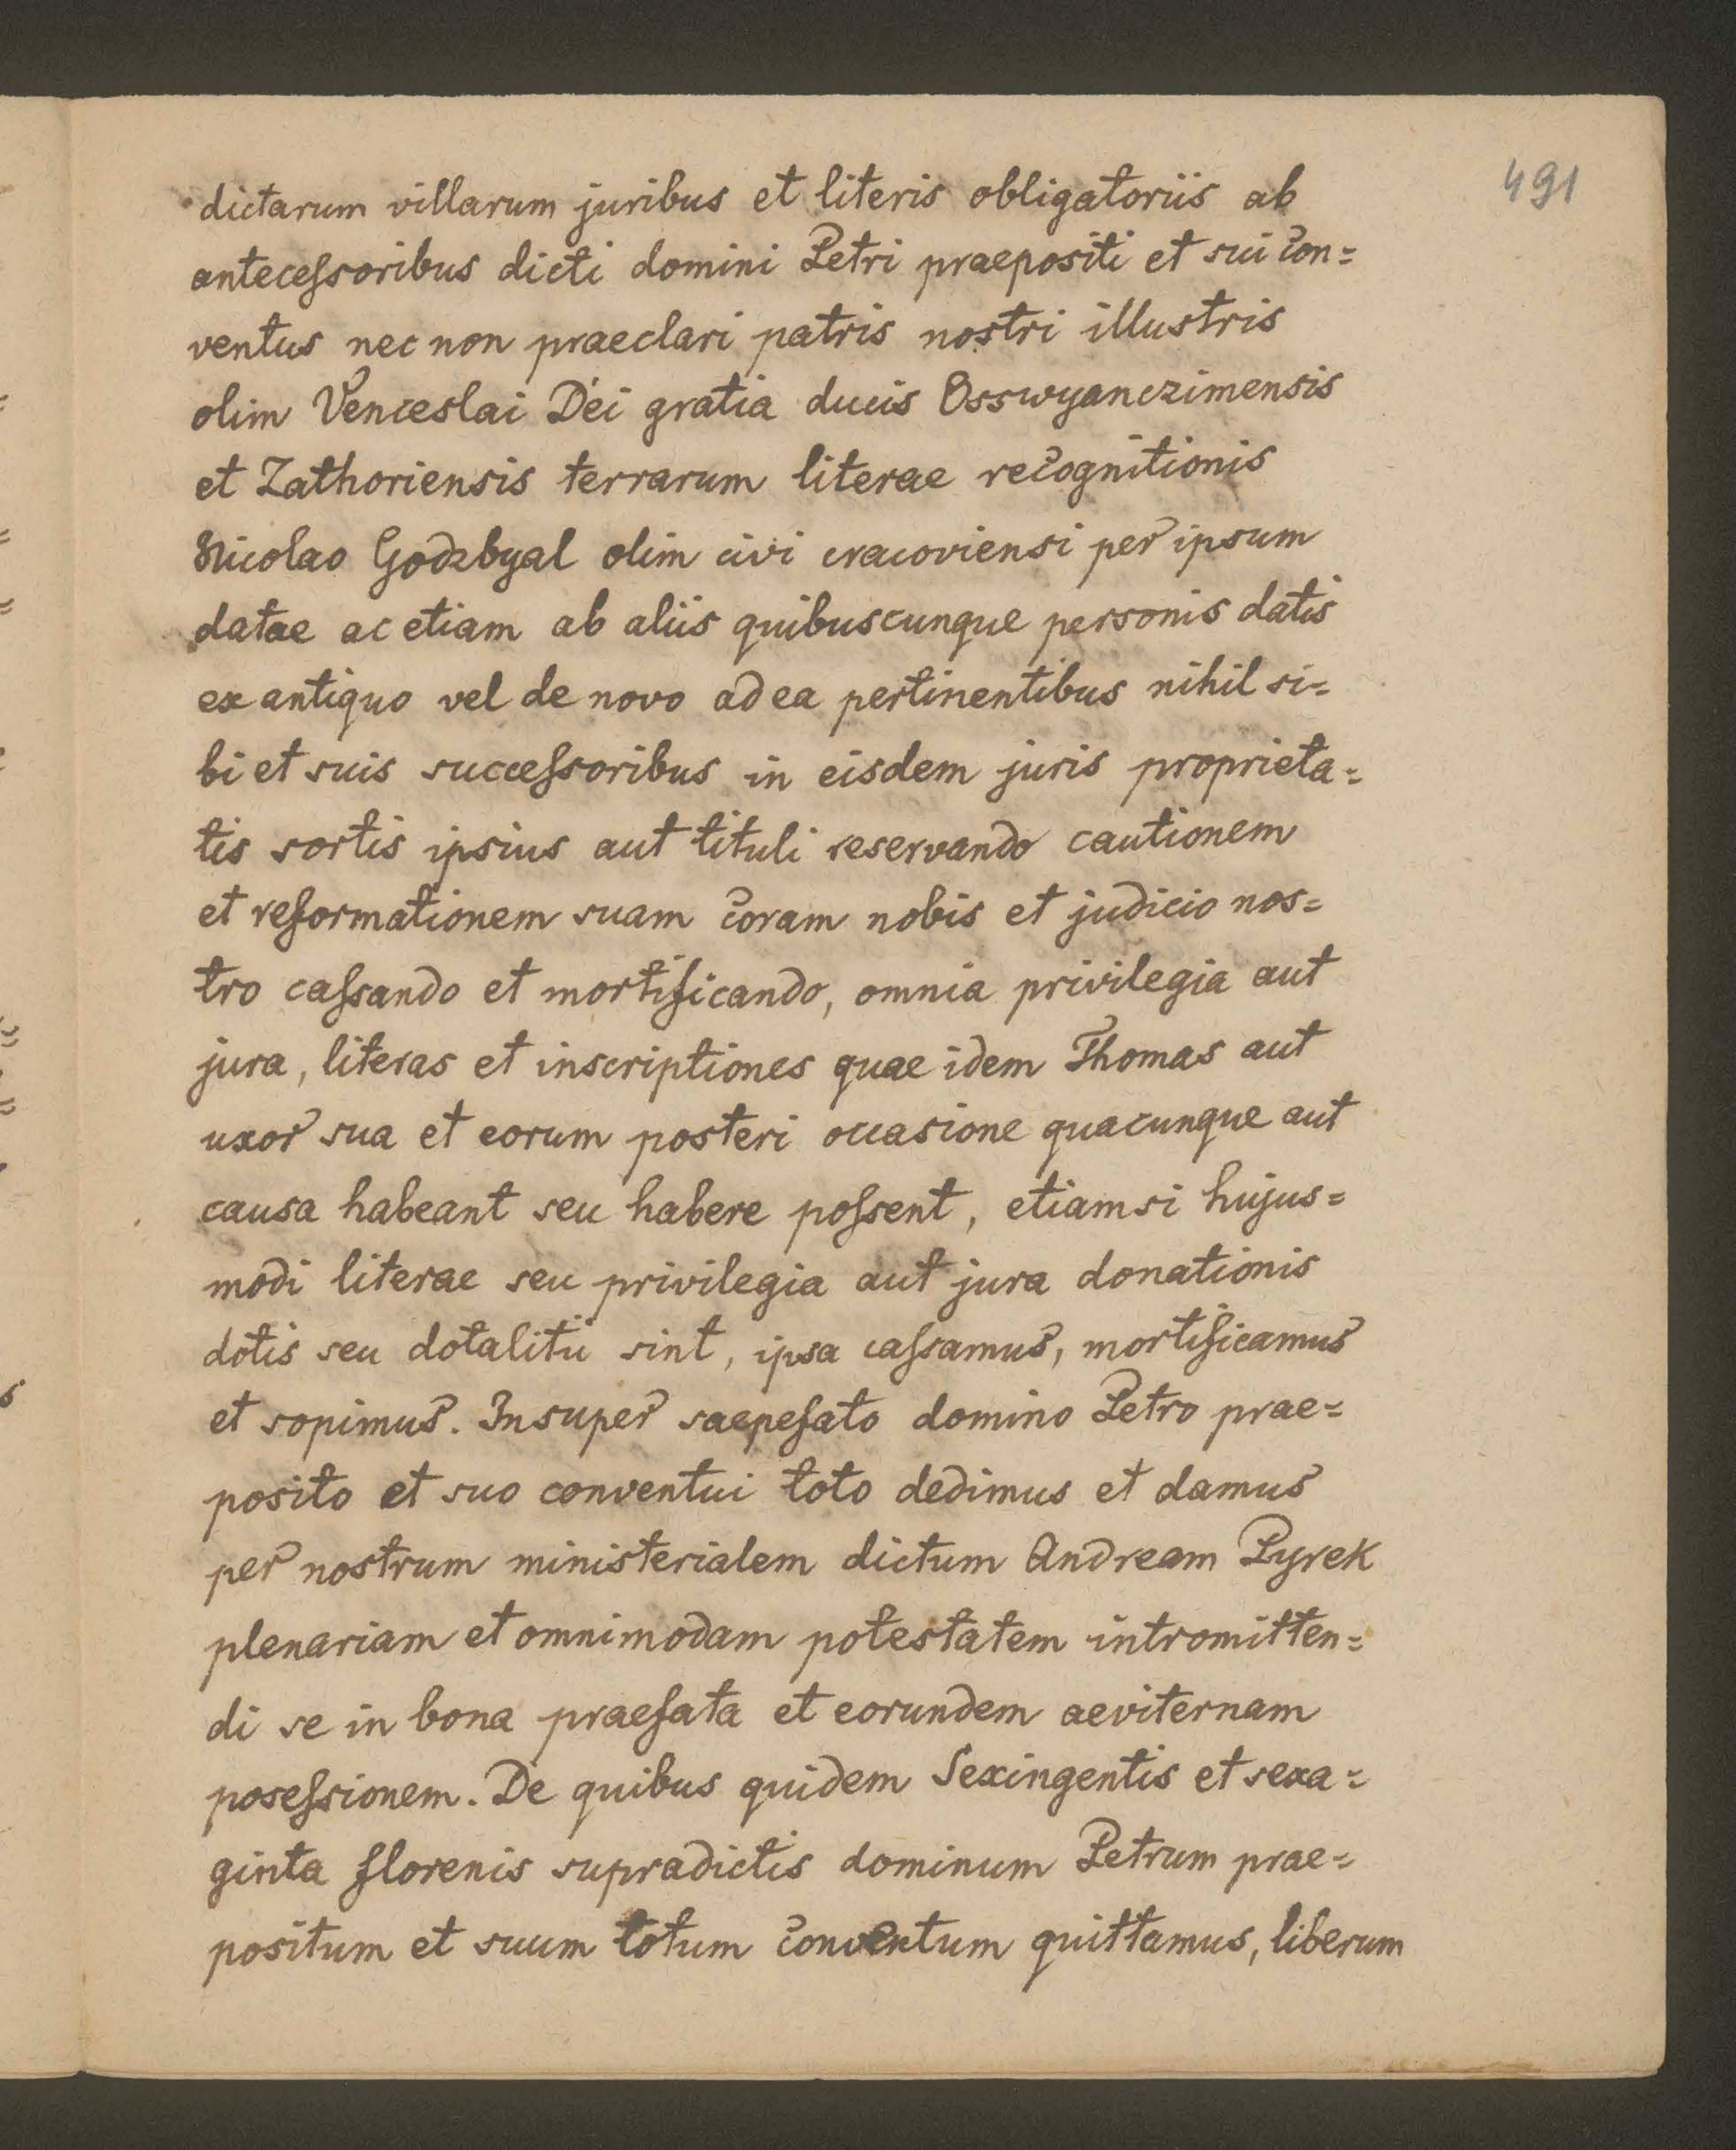 491
dictarum villarum juribus et literis obligatoriis ab
anteceſsoribus dicti domini Petri praepositi et sui con=
ventus nec non praeclari patris nostri illustris
olim Venceslai Dei gratia ducis Osswyanczimensis
et Zathoriensis terrarum literae recognitionis
Nicolao Godzbyal olim civi cracoviensi per ipsum
datae ac etiam ab aliis quibuscunque personis datis
ex antiquo vel de novo ad ea pertinentibus nihil si=
bi et suis succeſsoribus in eisdem juris proprieta=
tis sortis ipsius aut tituli reservando cautionem
et reformationem suam coram nobis et judicio nos=
tro caſsando et mortificando, omnia privilegia aut
jura, literas et inscriptiones quae idem Thomas aut
uxor sua et eorum posteri occasione quacunque aut
causa habeant seu habere poſsent, etiamsi hujus=
modi literae seu privilegia aut jura donationis
dotis seu dotalitii sint, ipsa caſsamus, mortificamus
et sopimus. Insuper saepefato domino Petro prae=
posito et suo conventui toto dedimus et damus
per nostrum ministerialem dictum Andream Pyrek
plenariam et omnimodam potestatem intromitten=
di se in bona praefata et eorundem aeviternam
poseſsionem. De quibus quidem Sexingentis et sexa=
ginta florenis supradictis dominum Petrum prae=
positum et suum totum conventum quittamus, liberum